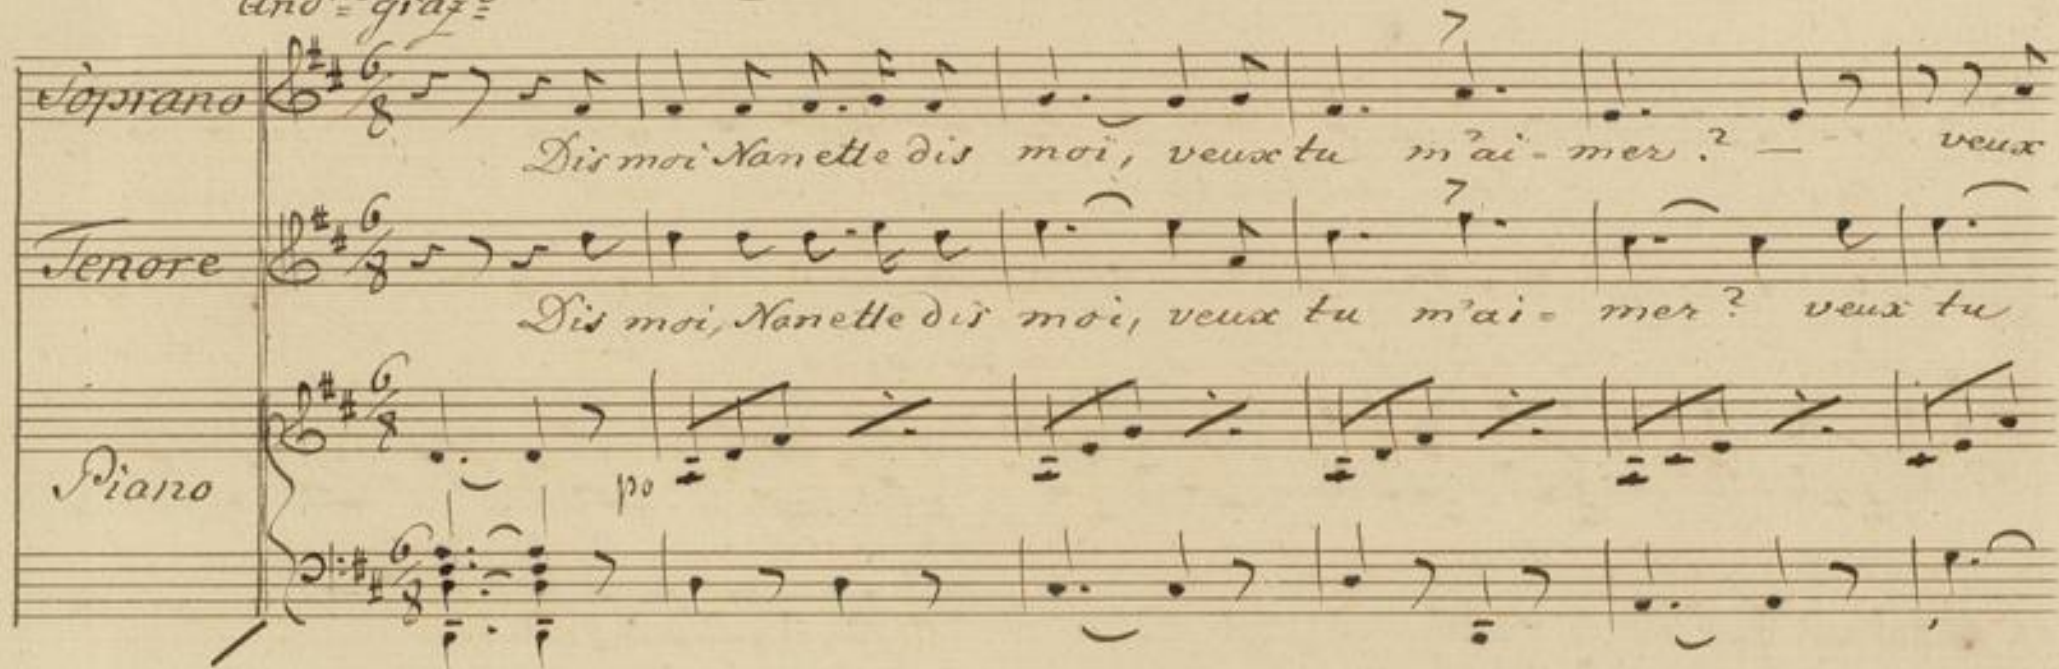 And= graz=
Soprano 6/8
Dis moi Nanette dis moi, veux tu m'ai- mer? — veux
Tenore 6/8
Dis moi, Nanette dis moi, veux tu m'ai= mer? veux tu
Piano 6/8
po
6/8